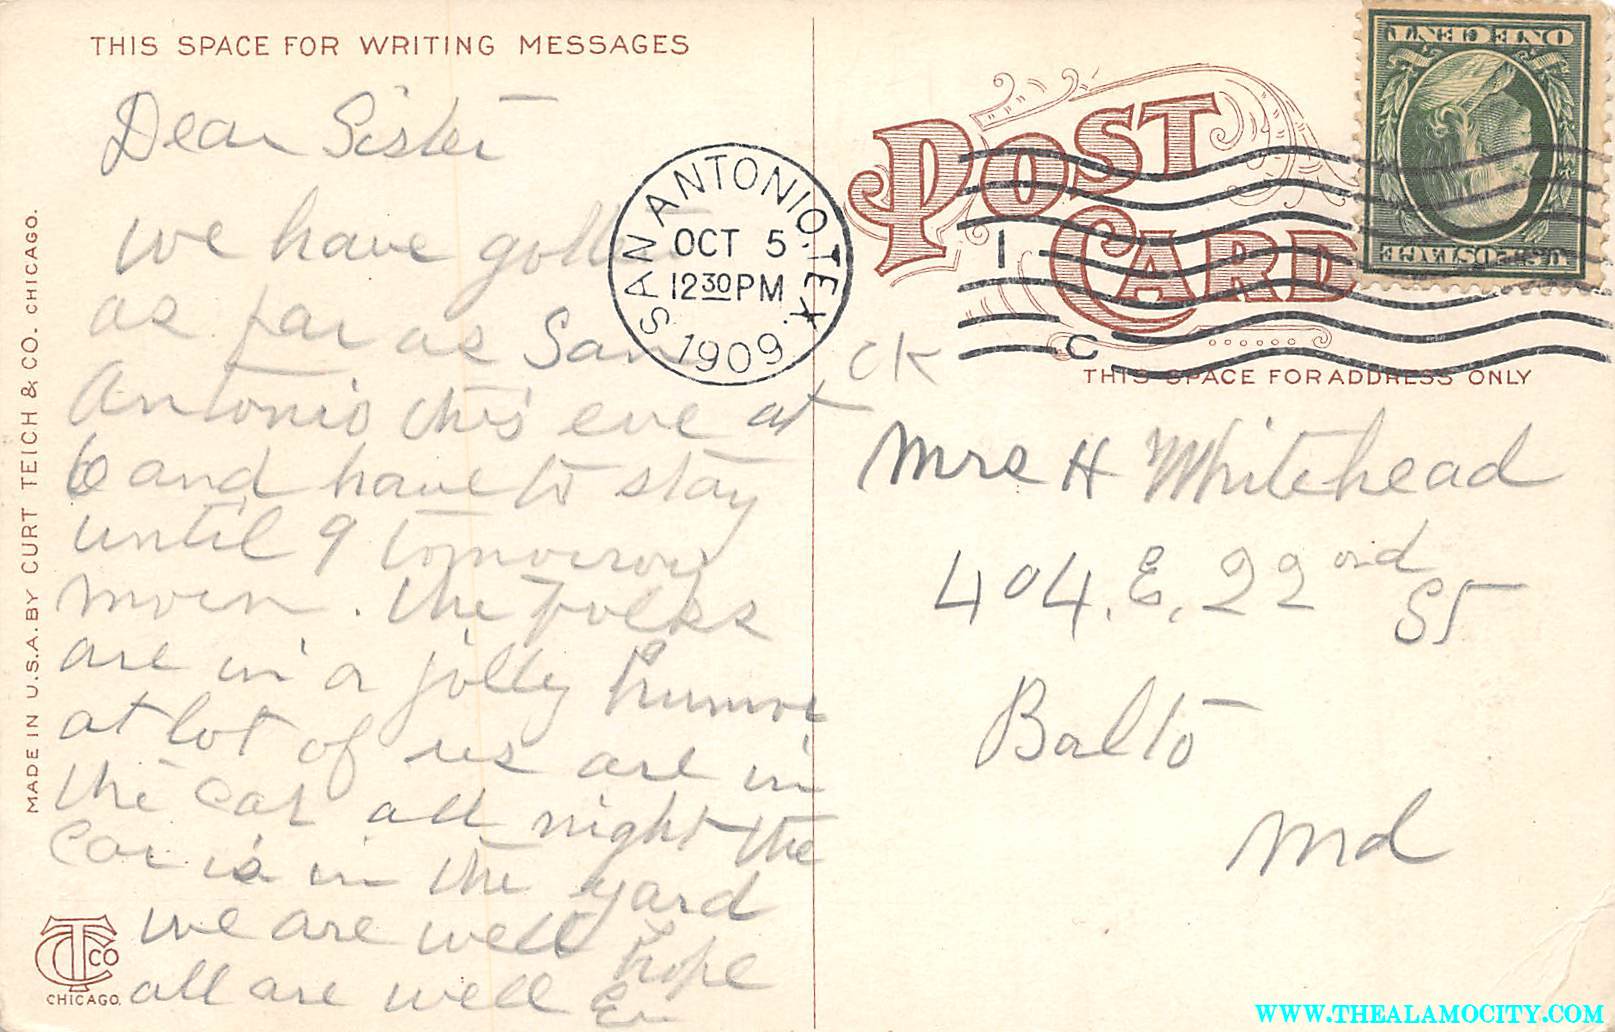 THIS SPACE FOR WRITING MESSAGES
Dear Sister
we have gotten
as far as San
Antonio this eve at
6 and have to stay
until 9 tomorrow
morn. the folks
are in a jolly humor
at lot of us are in
the car all night the
car is in the yard
we are well hope
all are well
MADE IN U.S.A. BY CURT TEICH & CO. CHICAGO.
CT CO
CHICAGO.
SAN ANTONIO, TEX.
OCT 5
12 30 PM
1909
POST CARD
1
C
ONE CENT
U.S. POSTAGE
THIS SPACE FOR ADDRESS ONLY
CK
Mrs H Whitehead
404. E. 22 ond St
Balto
Md
WWW.THEALAMOCITY.COM